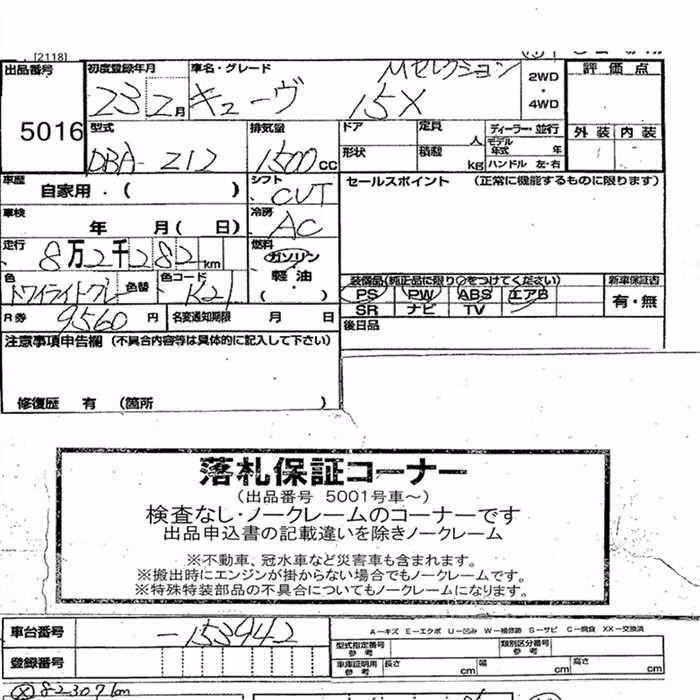 [2118]
出品番号 初度登録年月 車名・グレード Mセレクション 2WD 評価点
23 2月 キューヴ 15X ・
5016 4WD
型式 排気量 ドア 定員 人 ディーラー・並行 外装 内装
DBA-Z12 1500cc 形状 積載 kg モデル年式 年
ハンドル 左・右
車歴 自家用・( ) シフト CVT セールスポイント (正常に機能するものに限ります)
車検 年 月( 日) 冷房 AC
走行 8万2千282km 燃料 ガソリン
・
軽油
( )
色 トワイライトグレー 色替 色コード K21 装備品(純正品に限り○をつけてください) 新車保証書
PS PW ABS エアB 有・無
SR ナビ TV
R券 9560円 名変通知期限 月 日 後日品
注意事項申告欄 (不具合内容等は具体的に記入して下さい)
修復歴 有 (箇所 )
落札保証コーナー
(出品番号 5001号車~)
検査なし・ノークレームのコーナーです
出品申込書の記載違いを除きノークレーム
※不動車、冠水車など災害車も含まれます。
※搬出時にエンジンが掛からない場合でもノークレームです。
※特殊特装部品の不具合についてもノークレームになります。
車台番号 -153942 A-キズ E-エクボ U-凹み W-補修跡 S-サビ C-腐食 XX-交換済
型式指定番号 参考 類別区分番号 参考
登録番号 車庫証明用 参考 長さ cm 幅 cm 高さ cm
82307km